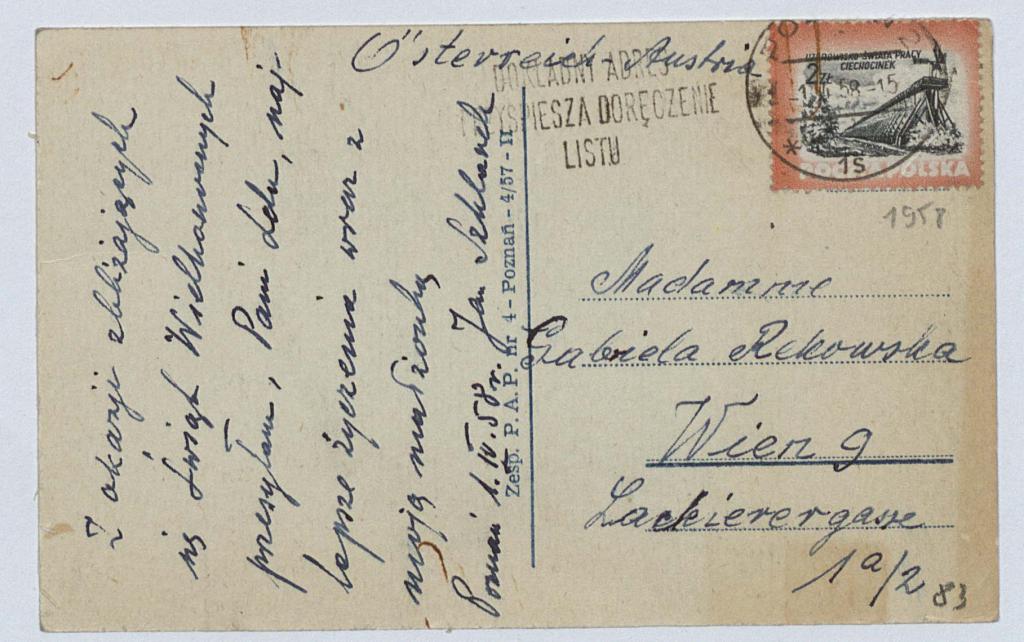 Österreich - Austria
DOKŁADNY ADRES
PRZYSPIESZA DORĘCZENIE
LISTU
UZDROWISKO ŚWIATA PRACY
CIECHOCINEK
2 ZŁ
58-15
1s
POCZTA POLSKA
1958
Z okazji zbliżających
się Świąt Wielkanocnych
przesyłam, Pani Lelu, naj-
lepsze życzenia wraz z
moją małżonką
Jan
Poznań 1.IV.58 r.
Zesp. P. A. P. nr 4 - Poznań - 4/57 - II
Madamme
Gabriela Rekowska
Wien 9
Lackierergasse
1a/2
83